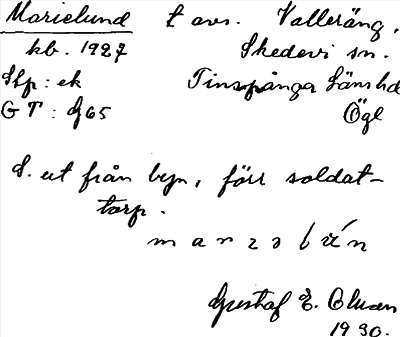 Marielund t avs. Valleräng,
kb. 1927 Skedevi sn.
Stp: ek Finspånga Länshd
GT: g65 Ögl
S. ut från byn, förr soldat-
torp.
Gustaf E. Olsson
1930.